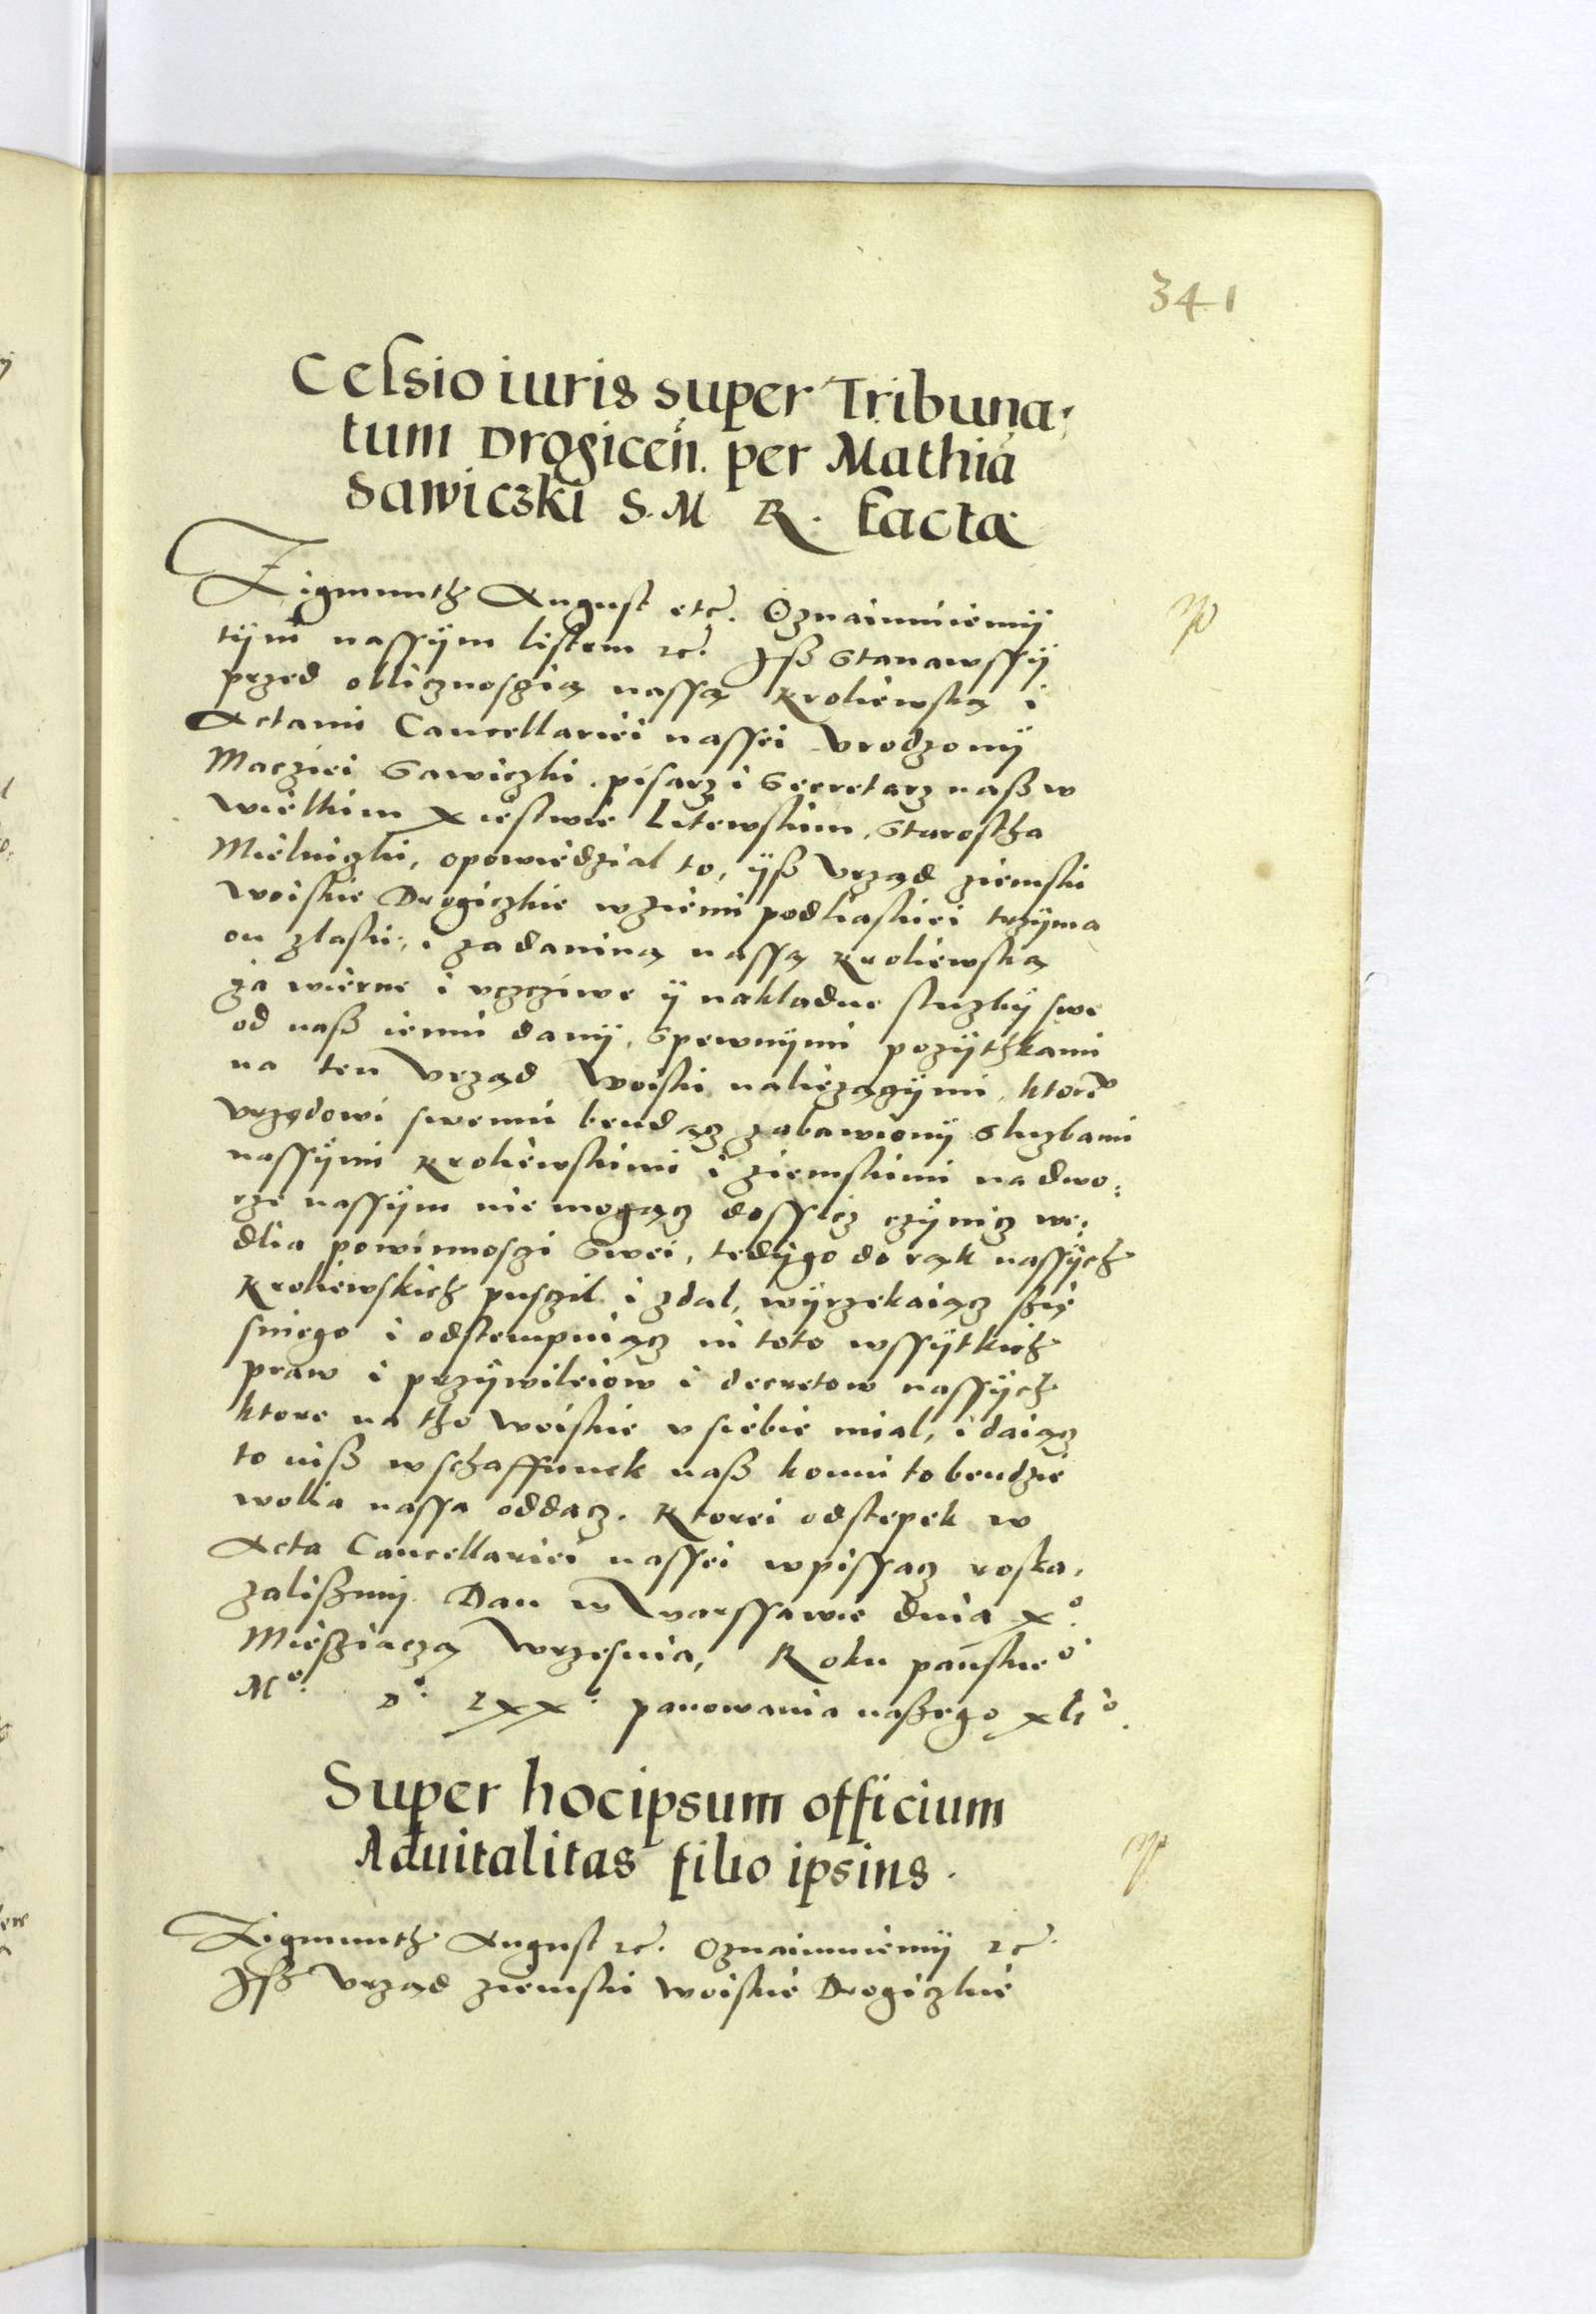 341
Cessio iuris super Tribuna-
tum Drogiceń. per Mathiā
Sawiczki S. M R. facta
Zigmunth August etc. Oznaimuiemÿ
tÿm nassÿm listem etc. Jsß Stanawssÿ
przed oblicznoscią nassą Kroliewską i
Actami Cancellariei nassei Vrodzonÿ
Macziei Sawiczki pisarz i Secretarz naß w
wielkim Xięstwie Litewskim, Starostha
Mielniczki, opowiedzial to, ÿß Vrząd ziemski
woiskie Drogiczkie w ziemi podliaskiei trzÿma
on z laski, i za daniną nassą Kroliewską
za wierne i vczciwe ÿ nakladne sluzbÿ swe
od naß iemu danÿ, s pewnÿmi pozÿthkami
na ten Vrząd woiski naliezącÿmi, ktor°
vrzędowi swemu bendącz zabawionÿ sluzbami
nassÿmi Kroliewskimi i ziemskimi na dwo:
rze nassÿm nie mogącz dossicz czÿnicz we:
dlia powinnosci swei, tedÿ go do rąk nassÿch
Kroliewskich pusczil i zdal, wÿrzekaiącz szię
s niego i odstempuiącz in toto wssÿtkich
praw i przÿwileiow i decretow nassÿch
ktore na tho woiskie v siebie mial, i daiącz
to iuß w schaffunek naß komu to bendzie
wolia nassa oddacz. Ktorei odstepek w
Acta Cancellariei nassei wpissacz roska,
zalißmÿ. Dan w Warssawie dnia X°
Miesziącza Wrzesnia, Roku panskie°
M° D° LXX° panowania naßego xli°.
Super hoc ipsum officium
Aduitalitas filio ipsius.
Zigmunth August etc. Oznaimuiemÿ etc.
Jsß Vrząd ziemski woiskie Drogiczkie